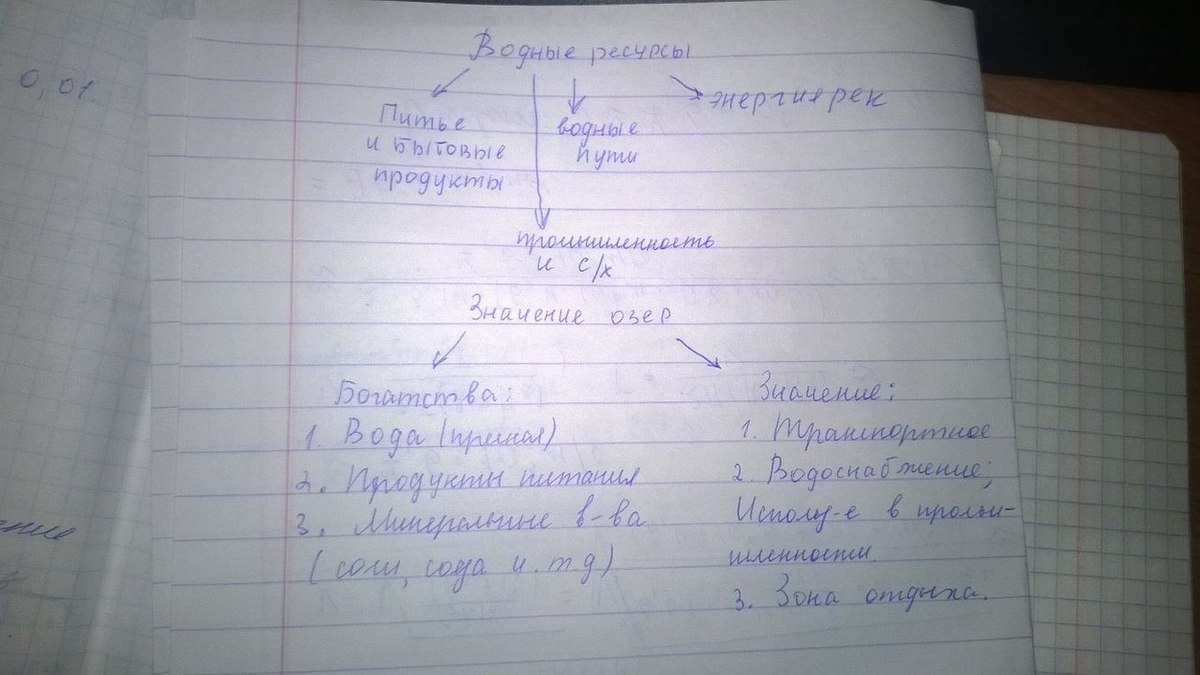 0,01
Водные ресурсы
энергия рек
Питье
и бытовые
продукты
водные
пути
промышленность
и с/х
Значение озер
Богатства:
1. Вода (пресная)
2. Продукты питания
3. Минеральные в-ва
(соли, сода и т.д)
Значение:
1. Транспортное
2. Водоснабжение;
Использ-е в промы-
шленности
3. Зона отдыха.